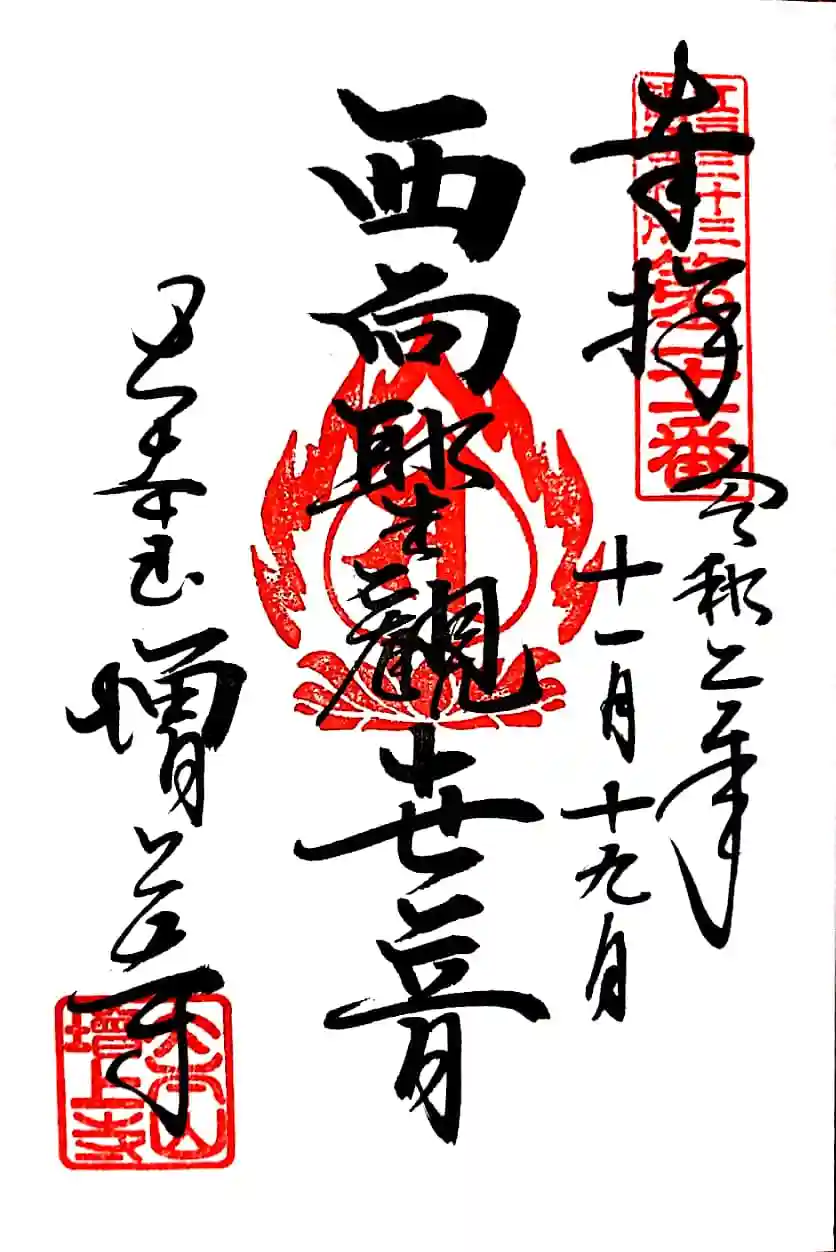 奉拝
江戸三十三
第二十一番
令和二年
十一月十九日
西向聖觀世音
増上寺
大本山
增上寺